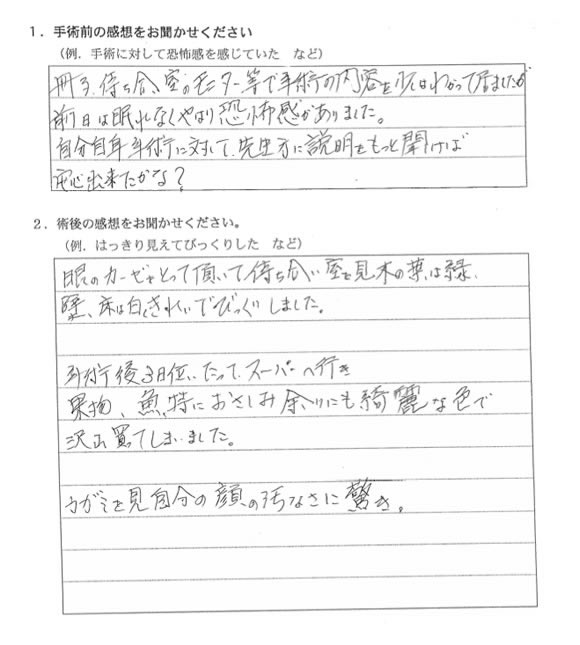 1．手術前の感想をお聞かせください
（例．手術に対して恐怖感を感じていた　など）
冊子、待ち合い室のモニター等で手術の内容を少しはわかって居ましたが
前日は眠れなくやはり恐怖感がありました。
自分自身手術に対して、先生方に説明をもっと聞けば
安心出来たかな？
2．術後の感想をお聞かせください。
（例．はっきり見えてびっくりした　など）
眼のガーゼをとって頂いて待ち合い室を見木の葉は緑、
壁、床は白くきれいでびっくりしました。
手術後3日位たって、スーパーへ行き
果物、魚、特におさしみ余りにも綺麗な色で
沢山買てしまいました。
カガミを見自分の顔の汚なさに驚き。